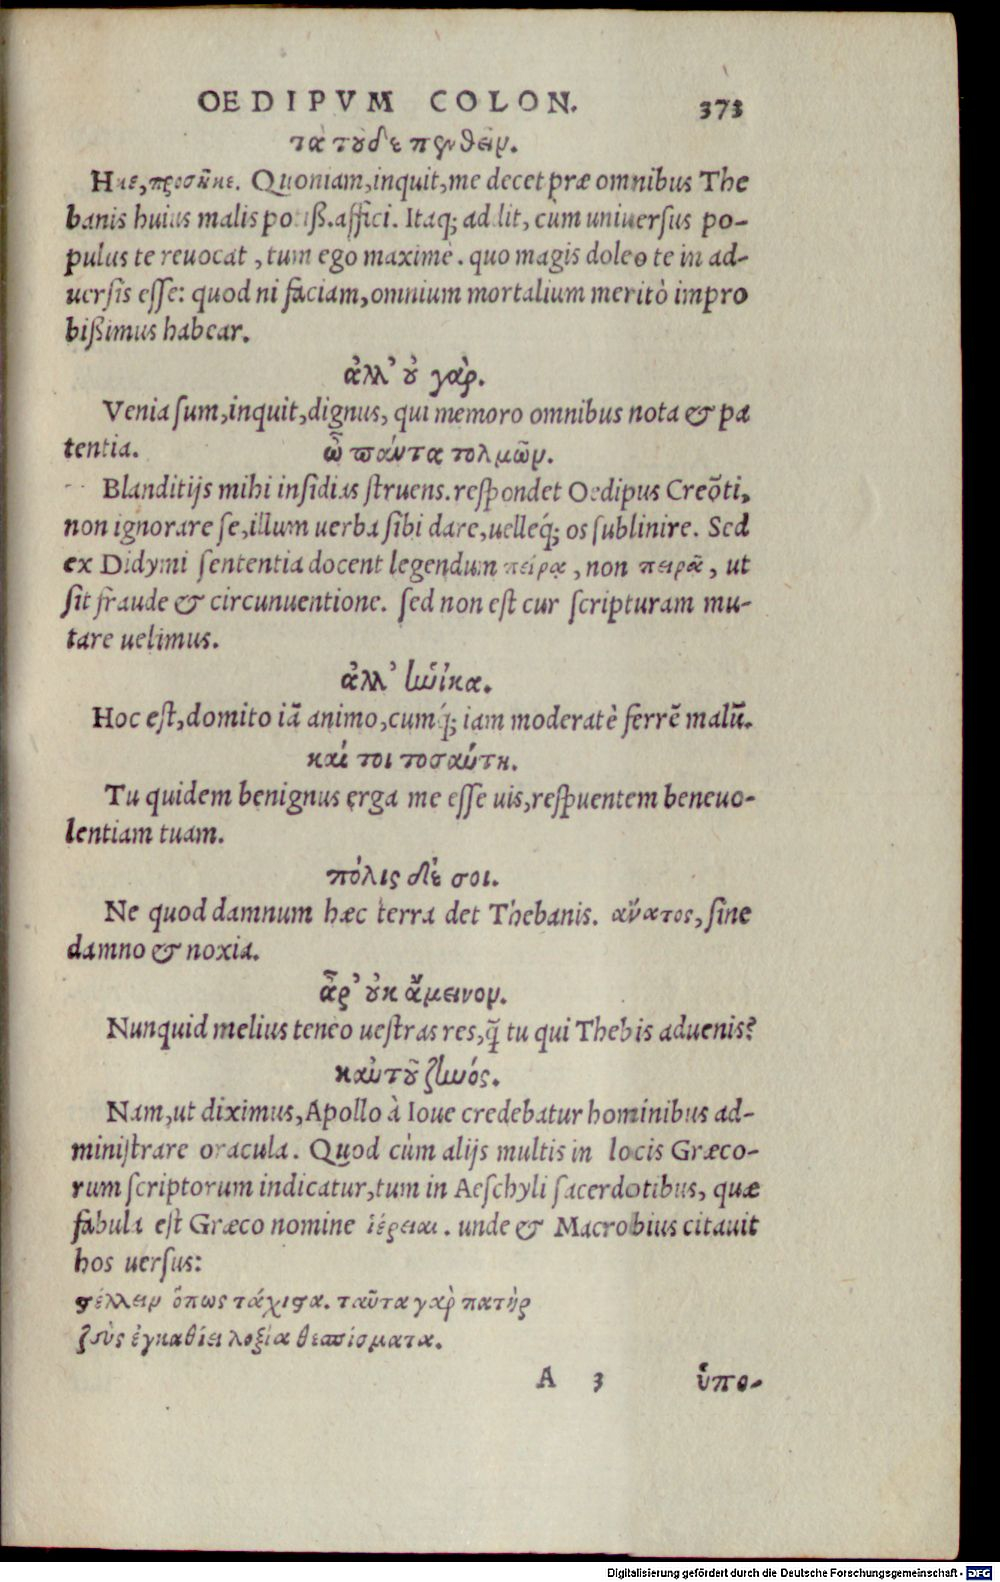 OEDIPVM COLON. 373
τὰ τοῦδε πενθεῖν.
Ηκε, προσῆκε. Quoniam, inquit, me decet præ omnibus The
banis huius malis potiß. affici. Itaq; addit, cùm uniuersus po-
pulus te reuocat, tum ego maximè. quo magis doleo te in ad-
uersis esse: quod ni faciam, omnium mortalium meritò impro
bißimus habear.
ἀλλ' οὐ γὰρ.
Venia sum, inquit, dignus, qui memoro omnibus nota & pa
tentia. ὦ πάντα τολμῶν.
Blanditijs mihi insidias struens. respondet Oedipus Creõti,
non ignorare se, illum uerba sibi dare, uelleq́; os sublinire. Sed
ex Didymi sententia docent legendum πείρᾳ, non πειρᾷ, ut
sit fraude & circunuentione. sed non est cur scripturam mu-
tare uelimus.
ἀλλ' ἡνίκα.
Hoc est, domito iã animo, cumq́; iam moderatè ferrẽ malũ.
καί τοι τοσαύτη.
Tu quidem benignus erga me esse uis, respuentem beneuo-
lentiam tuam.
πόλις δέ σοι.
Ne quod damnum hæc terra det Thebanis. ἄνατος, sine
damno & noxia.
ἆρ' οὐκ ἄμεινον.
Nunquid melius teneo uestras res, q̃ tu qui Thebis aduenis?
καὐτοῦ ζηνός.
Nam, ut diximus, Apollo à Ioue credebatur hominibus ad-
ministrare oracula. Quod cùm alijs multis in locis Græco-
rum scriptorum indicatur, tum in Aeschyli sacerdotibus, quæ
fabula est Græco nomine ἱέρειαι. unde & Macrobius citauit
hos uersus:
στέλλειν ὅπως τάχιστα. ταῦτα γὰρ πατὴρ
ζεὺς ἐγκαθίει λοξίᾳ θεσπίσματα.
A 3 ὑπο-
Digitalisierung gefördert durch die Deutsche Forschungsgemeinschaft - DFG